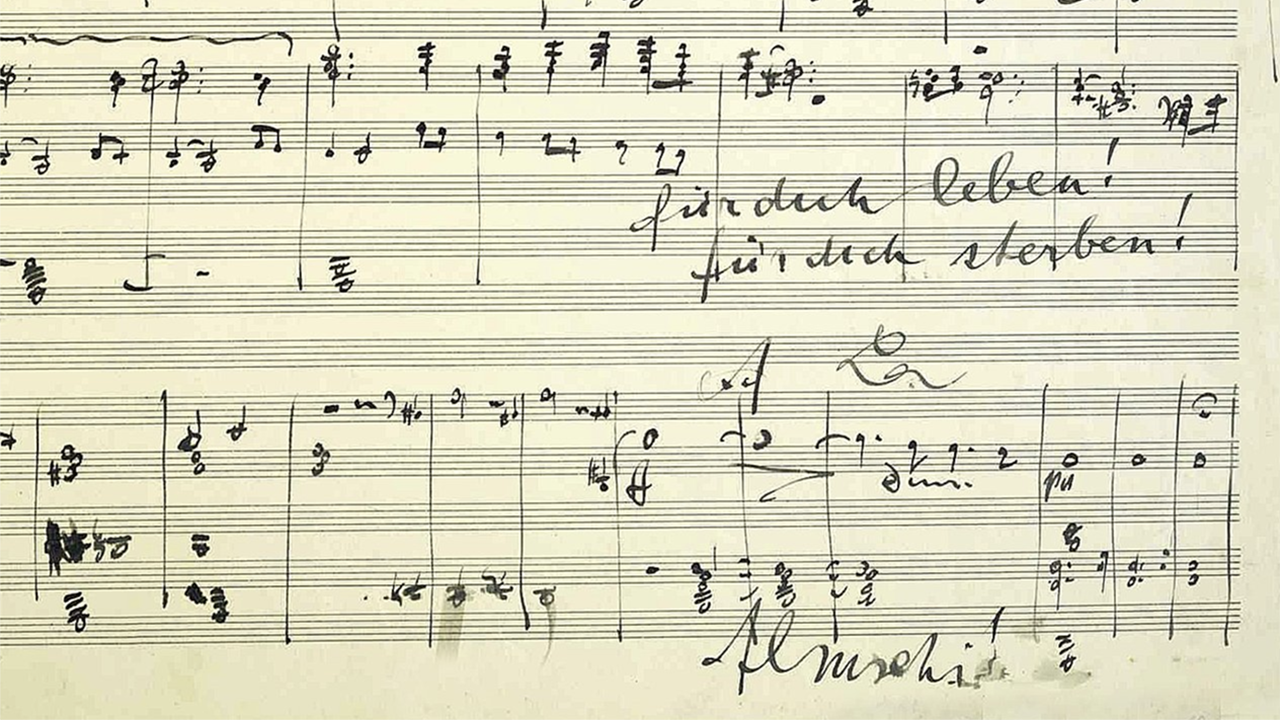 für dich leben!
für dich sterben!
dim.
Almschi!